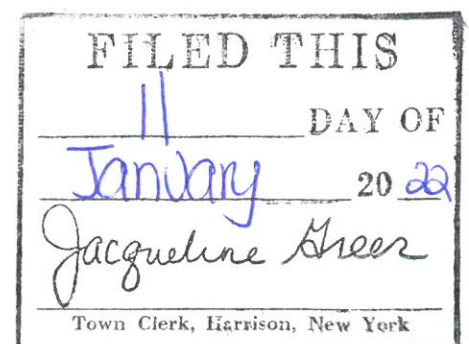 FILED THIS
11 DAY OF
January 20 22
Jacqueline Greer
Town Clerk, Harrison, New York